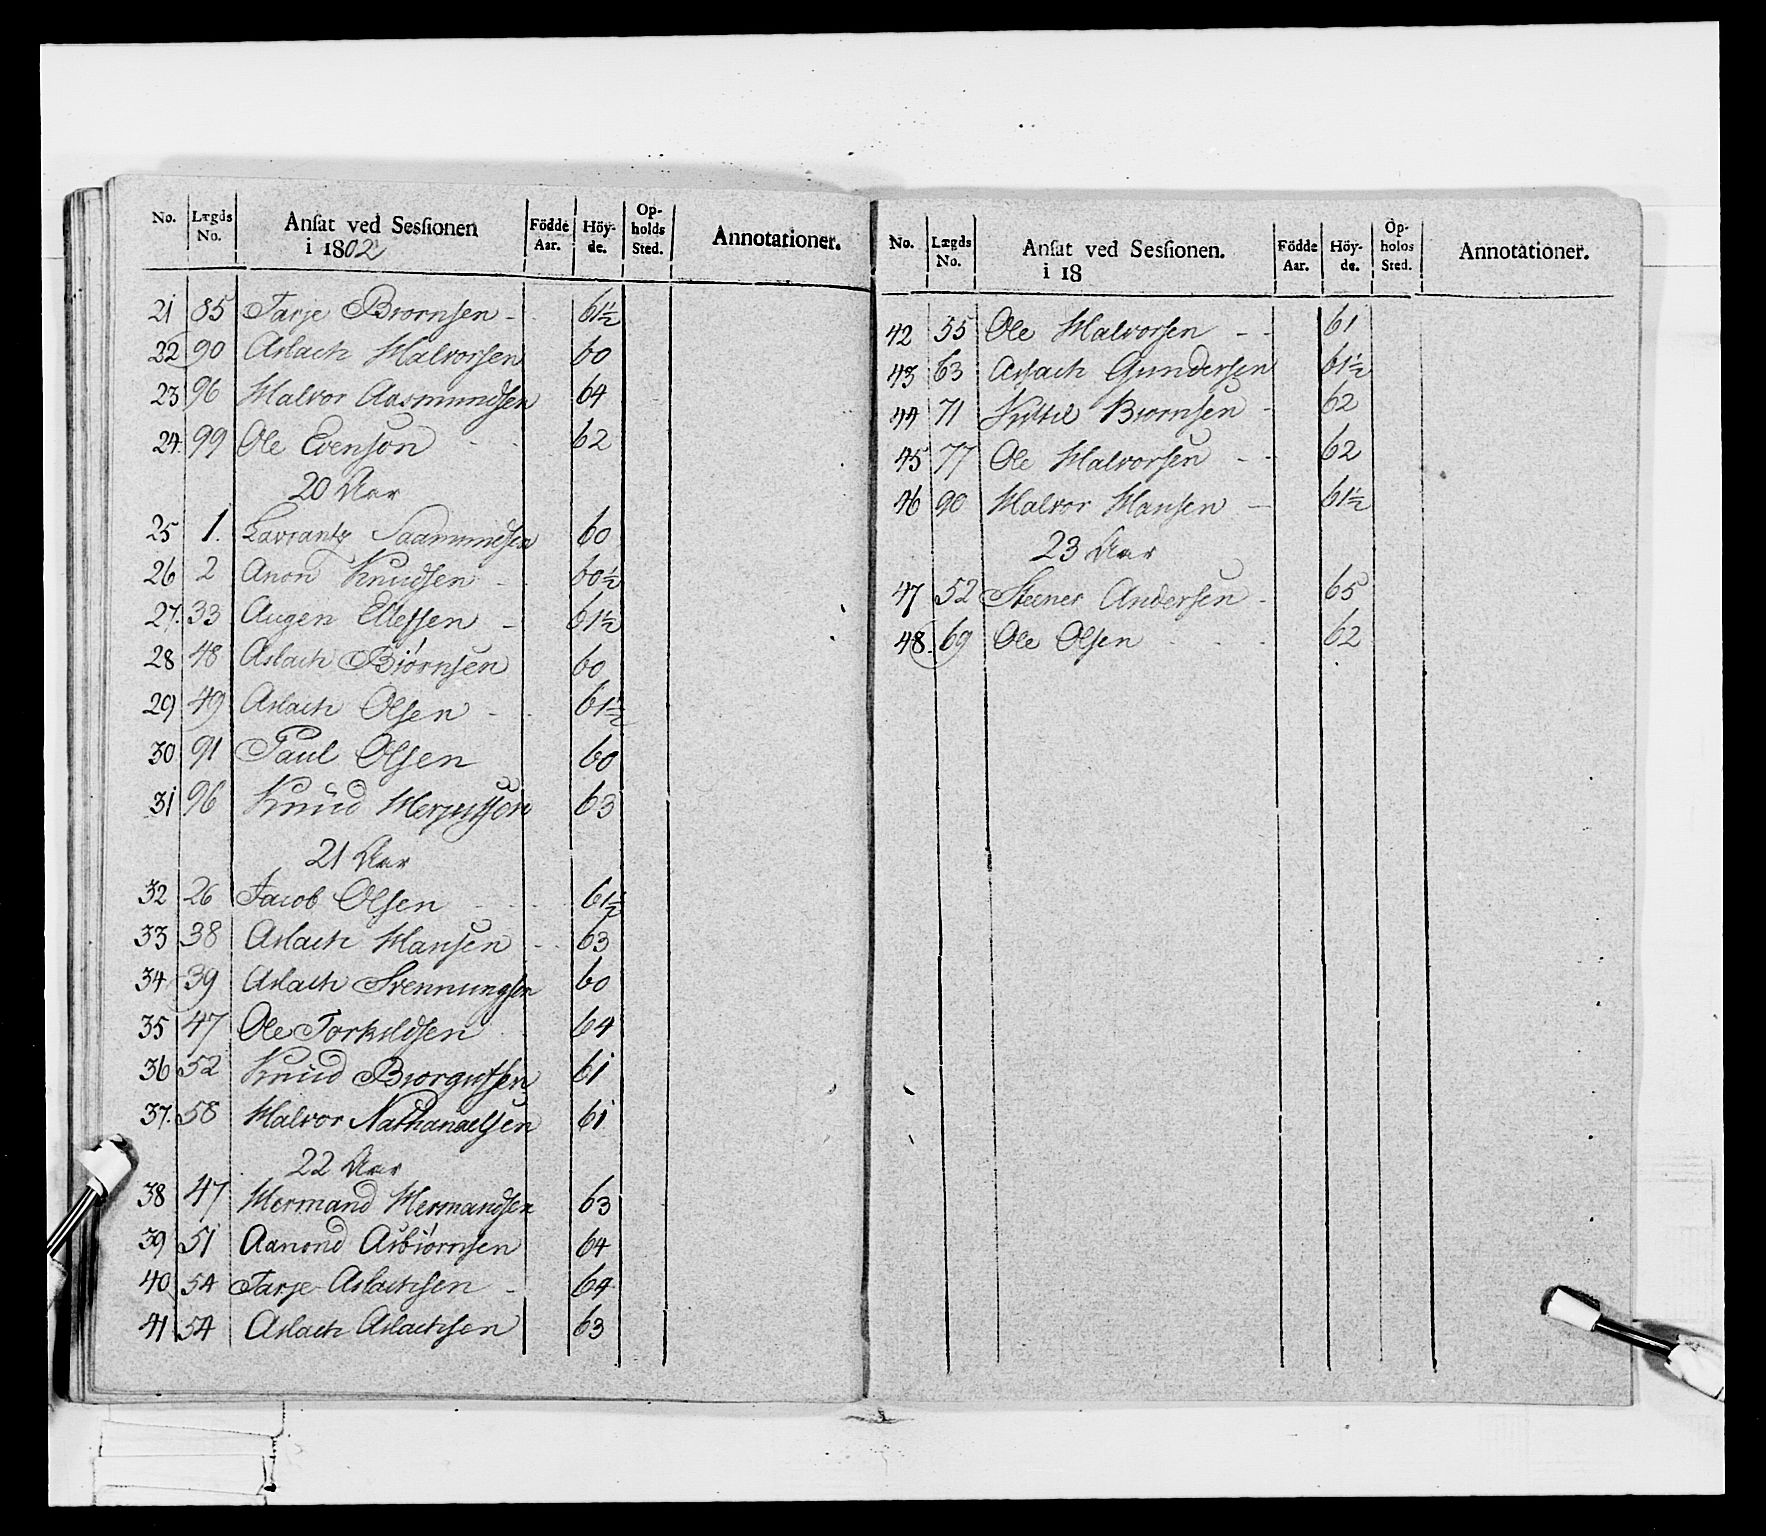 No. Lægds No. Ansat ved Sessionen i 1802 Födde Aar. Höy-de. Op-holds Sted. Annotationer.
21 85 Tarje Biornsen - 61½
22 90 Aslach Halvorsen 60
23 96 Halvor Aasmundsen 64
24. 99 Ole Evenson - - 62
20 Aar
25 1. Lavrantz Saamundsen 60
26 2 Anon Knudsen - 60½
27. 33 Augen Ellefsen - 61½
28 48 Aslach Biørnsen 60
29 49 Aslach Olsen - - 61½
30 91 Paul Olsen 60
31 96 Knud Herjusson 63
21 Aar
32 26 Jacob Olsen - - - 61½
33 38 Aslach Hansen - - 63
34 39 Aslach Svennungsen 60
35 47 Ole Torkildsen 64
36 52 Knud Biorgufsen 61
37. 58 Halvor Nathanaelsen 61
22 Aar
38 47 Hermand Hermandsen 63
39 51 Aanond Asbiørnsen 64
40 54 Tarje Aslachsen - 64
41 54 Aslach Aslachsen 63
No. Lægds No. Ansat ved Sessionen. i 18 Födde Aar. Höy-de. Op-holds Sted. Annotationer.
42 55 Ole Halvorsen - - 61
43 63 Aslach Gundersen 61½
44 71 Kittil Biornsen - 62
45 77 Ole Halvorsen - - 62
46 90 Halvor Hansen - 61½
23 Aar
47 52 Steener Andersen - 65
48. 69 Ole Olsen - - - 62